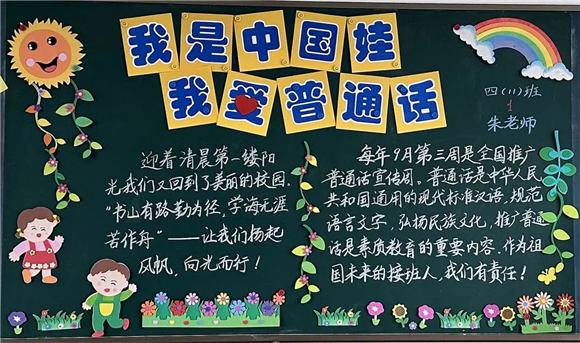 我是中国娃
我爱普通话
四(11)班
1
朱老师
迎着清晨第一缕阳
光我们又回到了美丽的校园。
“书山有路勤为径，学海无涯
苦作舟”——让我们扬起
风帆，向光而行！
每年9月第三周是全国推广
普通话宣传周。普通话是中华人民
共和国通用的现代标准汉语。规范
语言文字，弘扬民族文化，推广普通
话是素质教育的重要内容。作为祖
国未来的接班人，我们有责任！